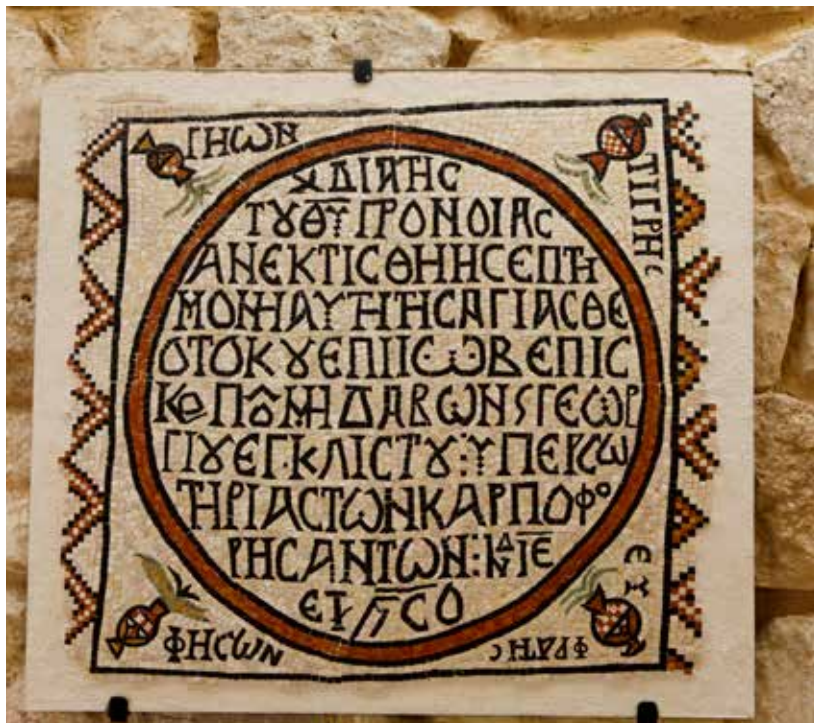 ΓΗΩΝ
ΤΙΓΡΗϹ
ΔΙΑΤΗϹ
ΤȢΘΥΠΡΟΝΟΙΑϹ
ΑΝΕΚΤΙϹΘΗΗϹΕΠΤΗ
ΜΟΝΗΑΥΤΗΤΗϹΑΓΙΑϹΘΕ
ΟΤΟΚȢΕΠΙΙΩΒΕΠΙϹ
ΚΟΠΟΥΜΗΔΑΒΩΝϚΓΕΩΡ
ΓΙȢΕΓΚΛΙϹΤȢ:ΥΠΕΡϹΩ
ΤΗΡΙΑϹΤΩΝΚΑΡΠΟΦΟ
ΡΗϹΑΝΤΩΝ:ΙΝΔΙΕ
ΕΤ ϚϹΟ
ΦΗϹΩΝ
ΕΥ
ΦΡΑΤΗϹ